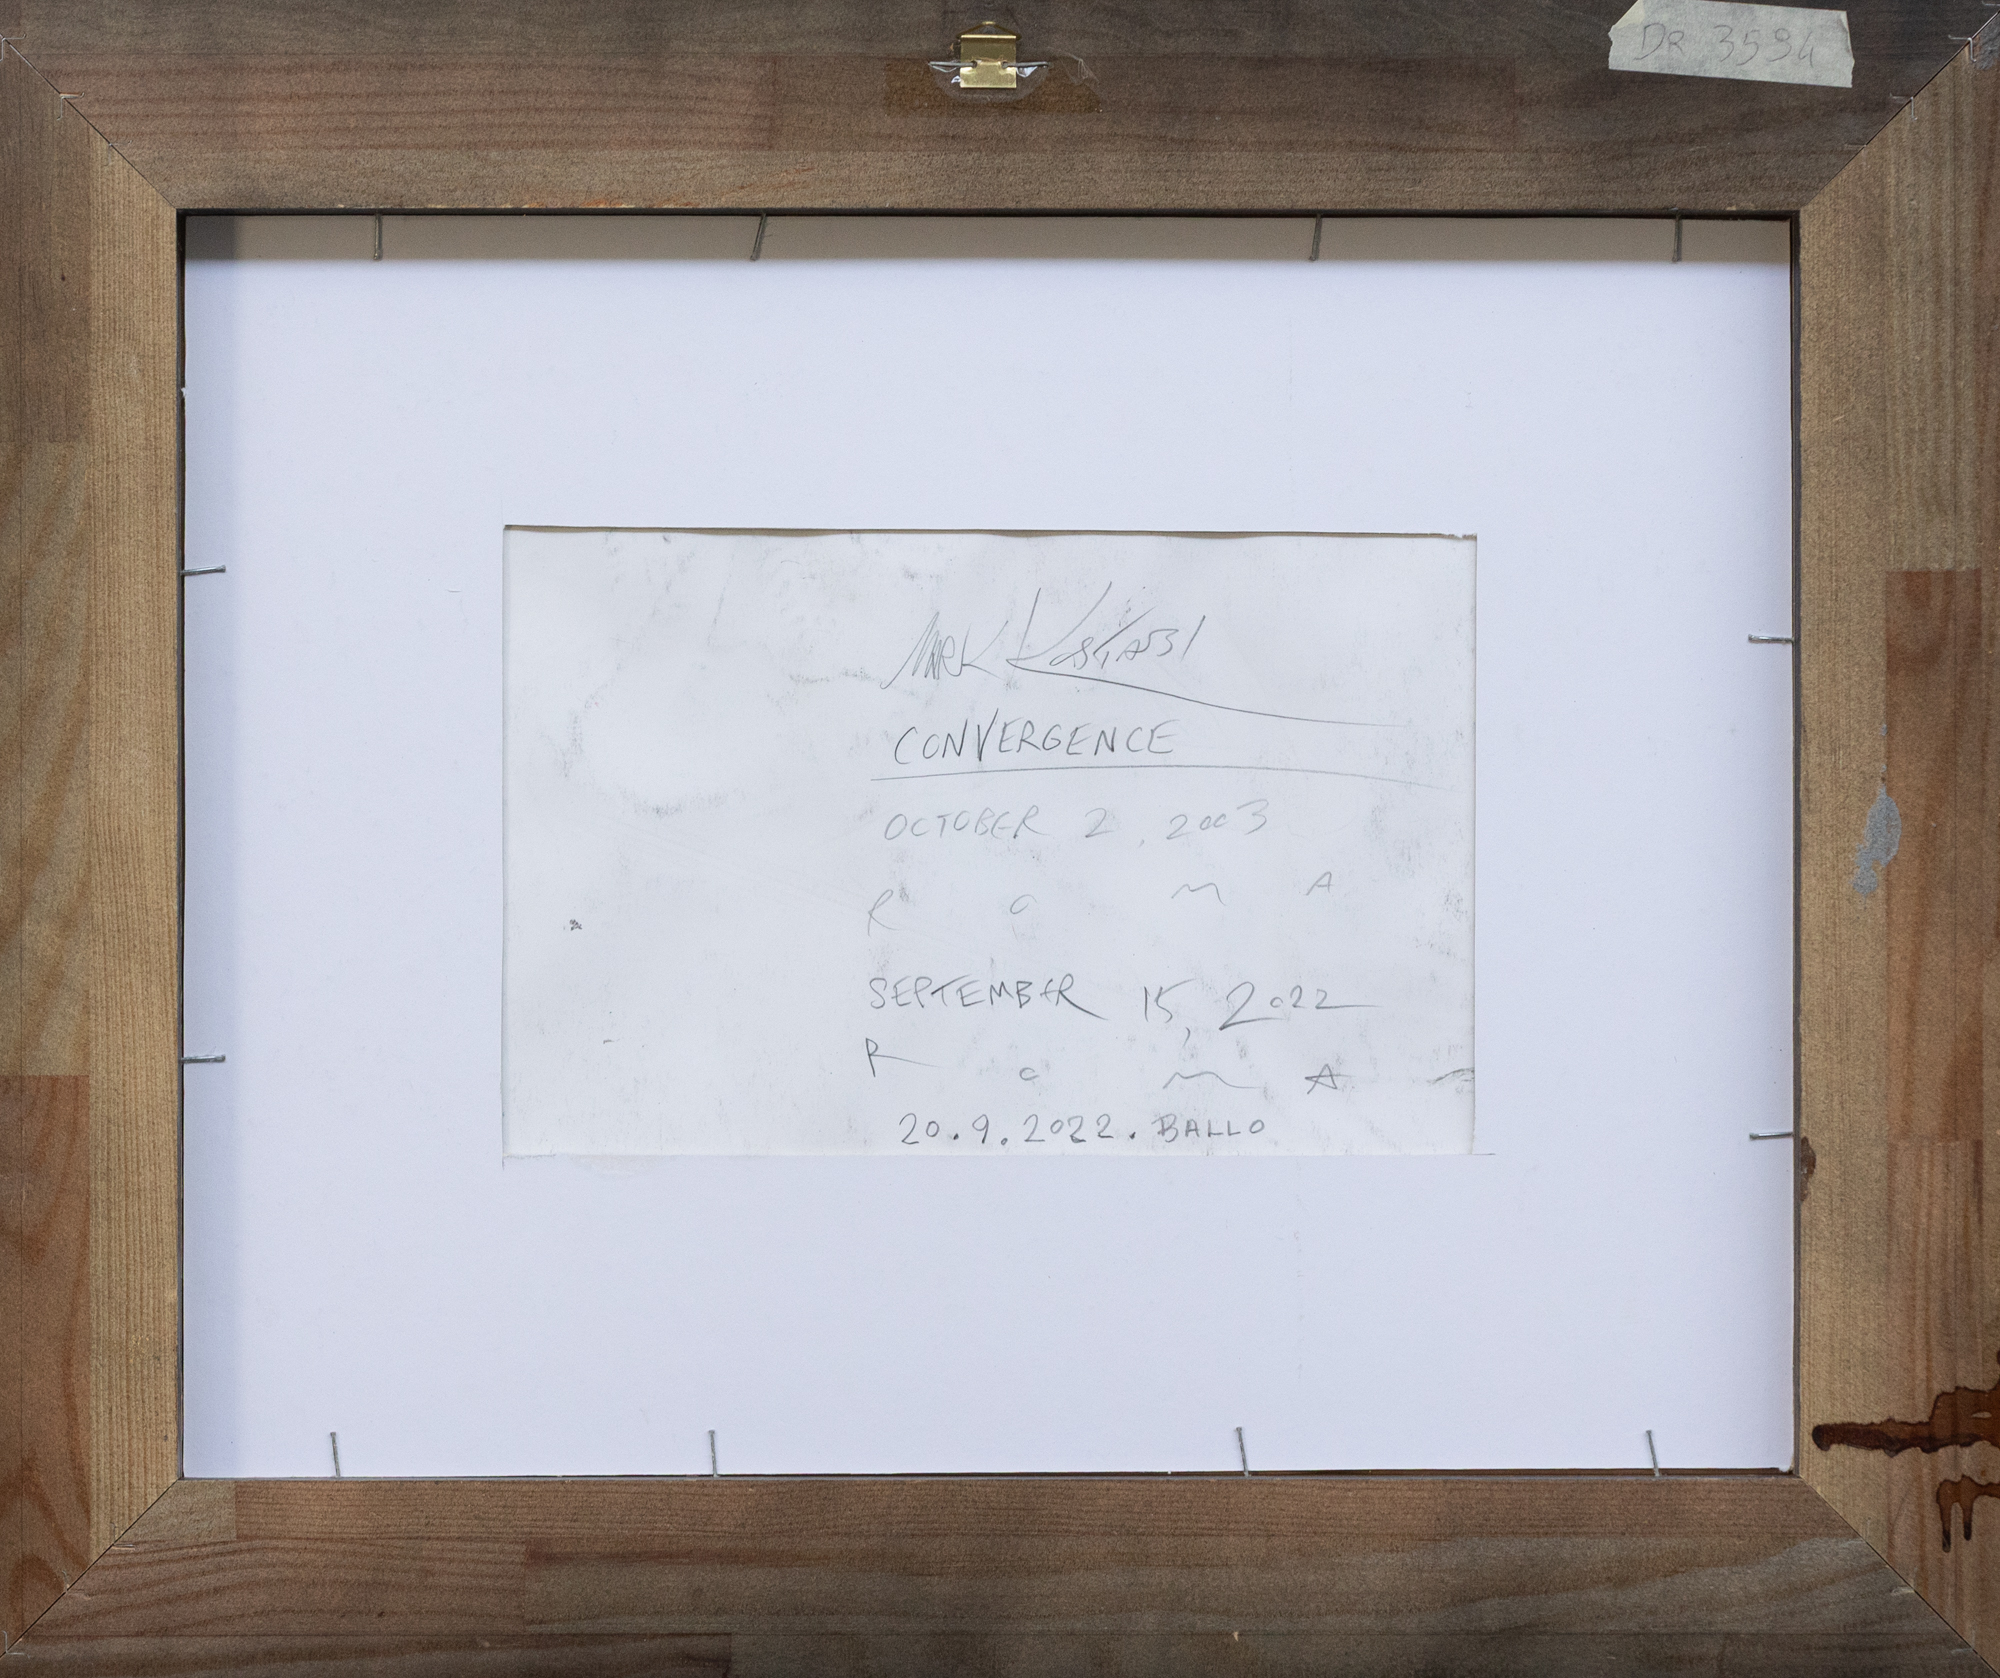 DR 3594
MARK KOSTABI
CONVERGENCE
OCTOBER 2, 2003
R o m A
SEPTEMBER 15, 2022
R o m A
20.9.2022. BALLO